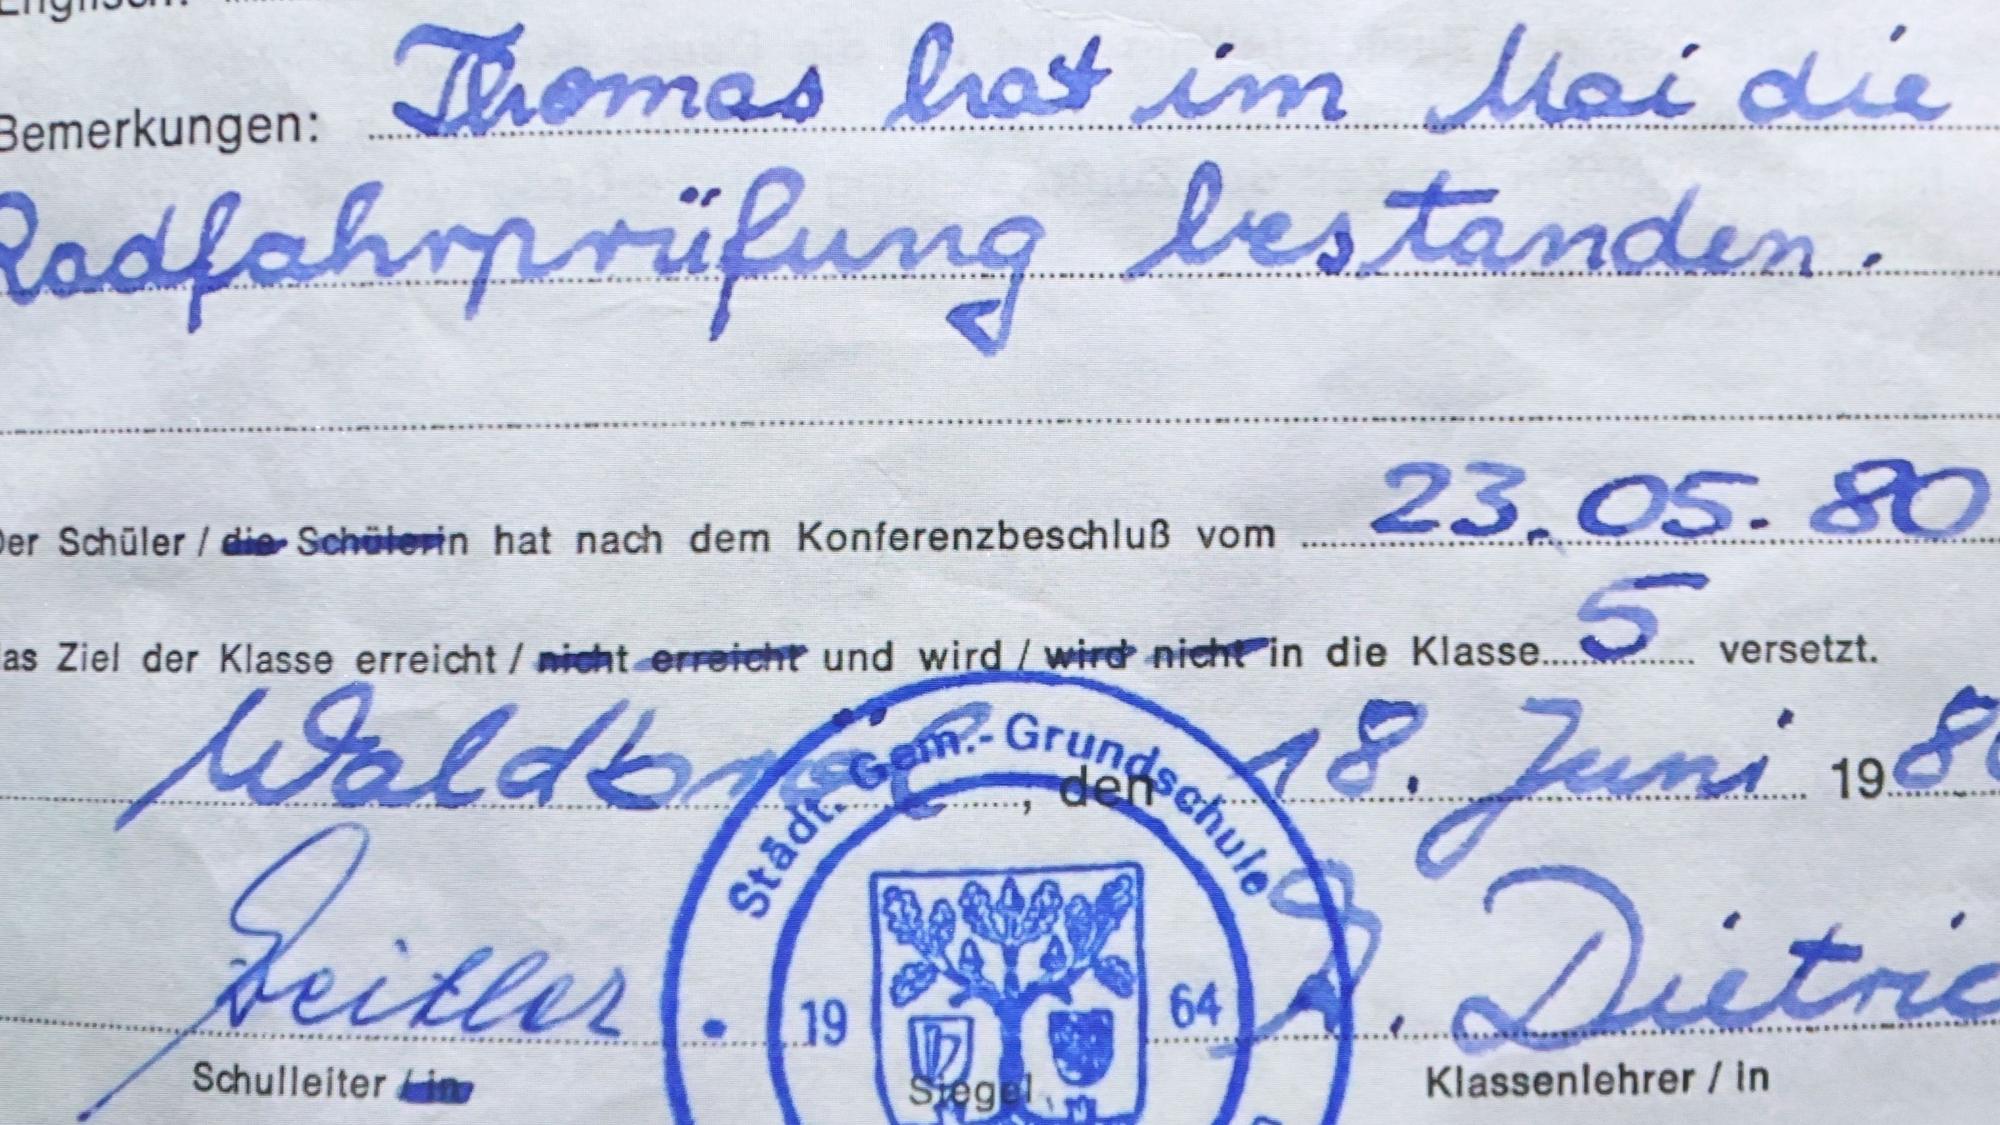 Englisch:
Bemerkungen: Thomas hat im Mai die
Radfahrprüfung bestanden.
Der Schüler / die Schülerin hat nach dem Konferenzbeschluß vom 23.05.80
das Ziel der Klasse erreicht / nicht erreicht und wird / wird nicht in die Klasse 5 versetzt.
Waldbröl, den 18. Juni 1980
Städt. Gem.-Grundschule
19 64
Schulleiter / in
Siegel
Klassenlehrer / in